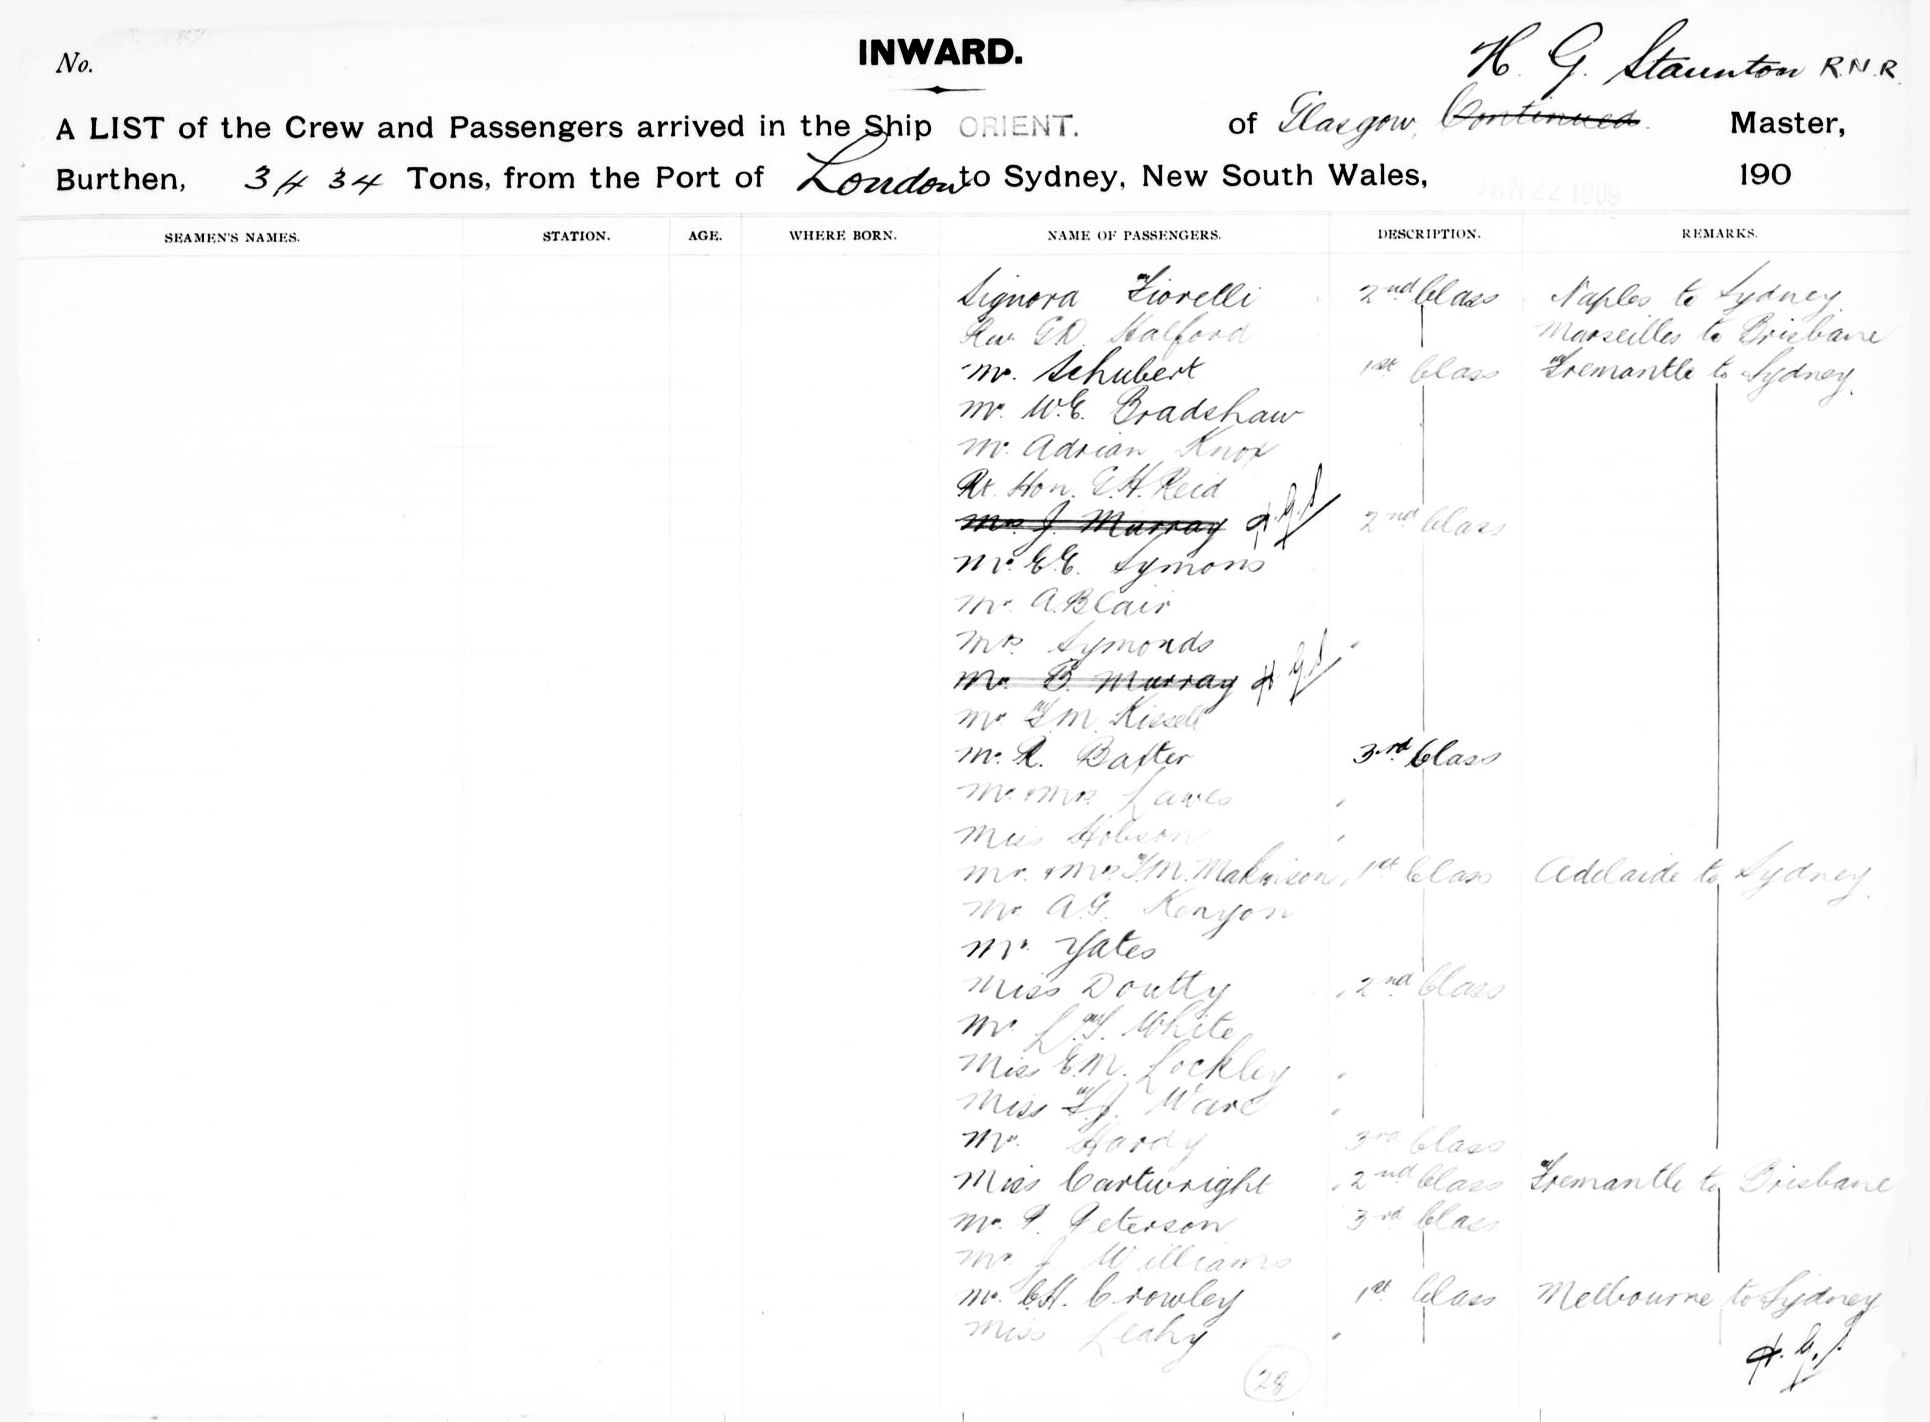 No.
INWARD.
H. G. Staunton R.N.R.
A LIST of the Crew and Passengers arrived in the Ship ORIENT. of Glasgow, Continued. Master,
Burthen, 3434 Tons, from the Port of London to Sydney, New South Wales, JAN 22 1909 190
SEAMEN'S NAMES. STATION. AGE. WHERE BORN. NAME OF PASSENGERS. DESCRIPTION. REMARKS.
Signora Fiorelli 2nd Class Naples to Sydney.
Rev G.D. Halford Marseilles to Brisbane
Mr. Schubert 1st Class Fremantle to Sydney.
Mr. W.E. Bradshaw
Mr. Adrian Knox
Rt. Hon. G.H. Reid
Mrs J. Murray H.G.S 2nd Class
Mr. E.E. Symons
Mr. A. Blair
Mrs. Symonds
Mr B. Murray H.G.S
Mr F.M. Kissell
Mr. R. Baxter 3rd Class
Mr. & Mrs Lawes
Miss Hobson
Mr. & Mrs F.M. Makinson 1st Class Adelaide to Sydney.
Mr A.G. Kenyon
Mr. Yates
Miss Doutty 2nd Class
Mr L.F. White
Miss E.M. Lockley
Miss F.J. Ware
Mr. Hardy 3rd Class
Miss Cartwright 2nd Class Fremantle to Brisbane
Mr. P. Peterson 3rd Class
Mr. J Williams
Mr. C.H. Crowley 1st Class Melbourne to Sydney
Miss Leahy
H.G.S.
28